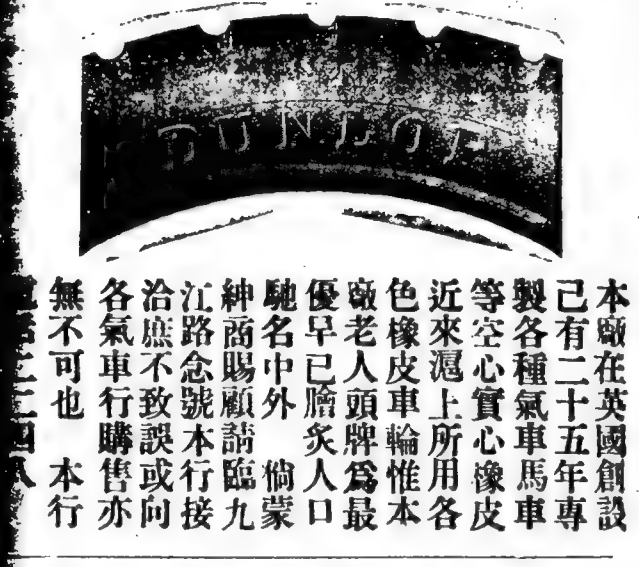 DUNLOP
本廠在英國創設
己有二十五年專
製各種氣車馬車
等空心實心橡皮
近來滬上所用各
色橡皮車輪惟本
廠老人頭牌爲最
優早已膾炙人口
馳名中外　倘蒙
紳商賜顧請臨九
江路念號本行接
洽庶不致誤或向
各氣車行購售亦
無不可也　本行
二二四八